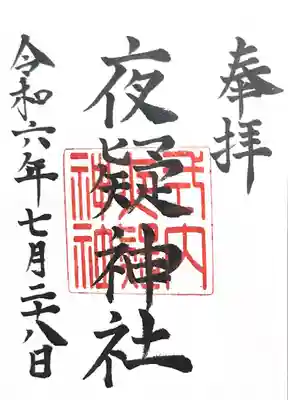 奉拝
夜疑神社
令和六年七月二十八日
式内
夜疑
神社